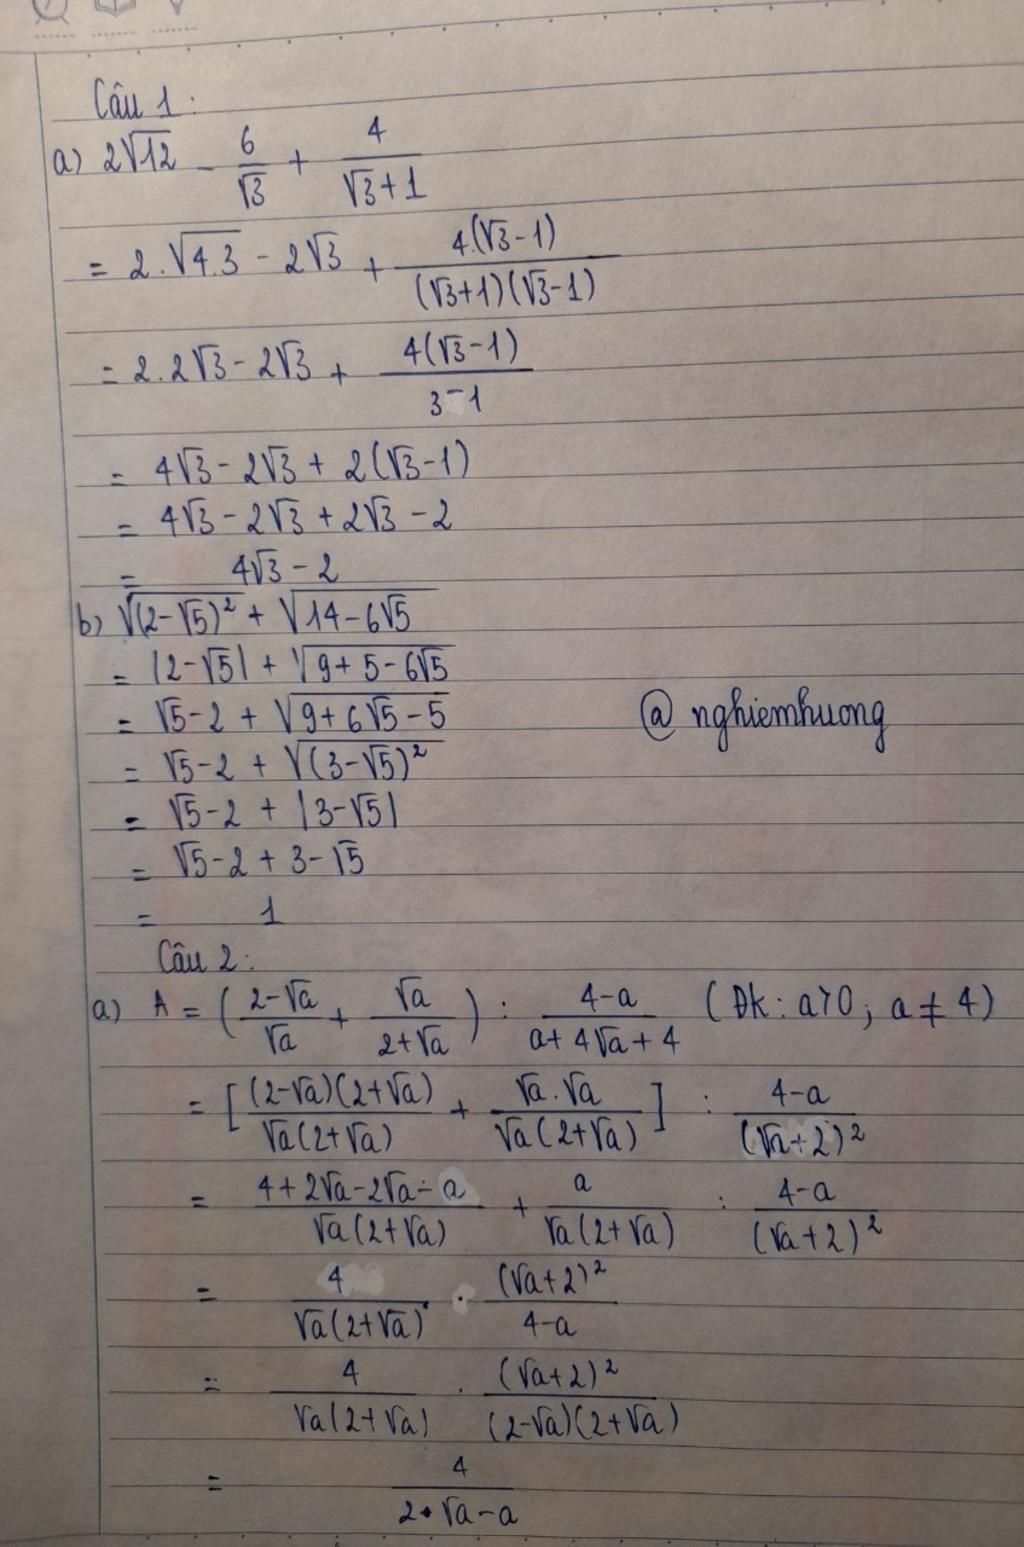 Câu 1 :
a) 2√12 - 6/√3 + 4/(√3+1)
= 2.√(4.3) - 2√3 + 4.(√3-1)/((√3+1)(√3-1))
= 2.2√3 - 2√3 + 4(√3-1)/(3-1)
= 4√3 - 2√3 + 2(√3-1)
= 4√3 - 2√3 + 2√3 - 2
= 4√3 - 2
b) √((2-√5)²) + √(14-6√5)
= |2-√5| + √(9+5-6√5)
= √5-2 + √(9+6√5-5)
@ nghiemhuong
= √5-2 + √((3-√5)²)
= √5-2 + |3-√5|
= √5-2 + 3-√5
= 1
Câu 2 :
a) A = ((2-√a)/√a + √a/(2+√a)) : (4-a)/(a+4√a+4) (Đk : a>0 ; a ≠ 4)
= [(2-√a)(2+√a)/(√a(2+√a)) + √a.√a/(√a(2+√a))] : (4-a)/(√a+2)²
= (4+2√a-2√a-a)/(√a(2+√a)) + a/(√a(2+√a)) : (4-a)/(√a+2)²
= 4/(√a(2+√a)) . (√a+2)²/(4-a)
= 4/(√a(2+√a)) . (√a+2)²/((2-√a)(2+√a))
= 4/(2.√a-a)